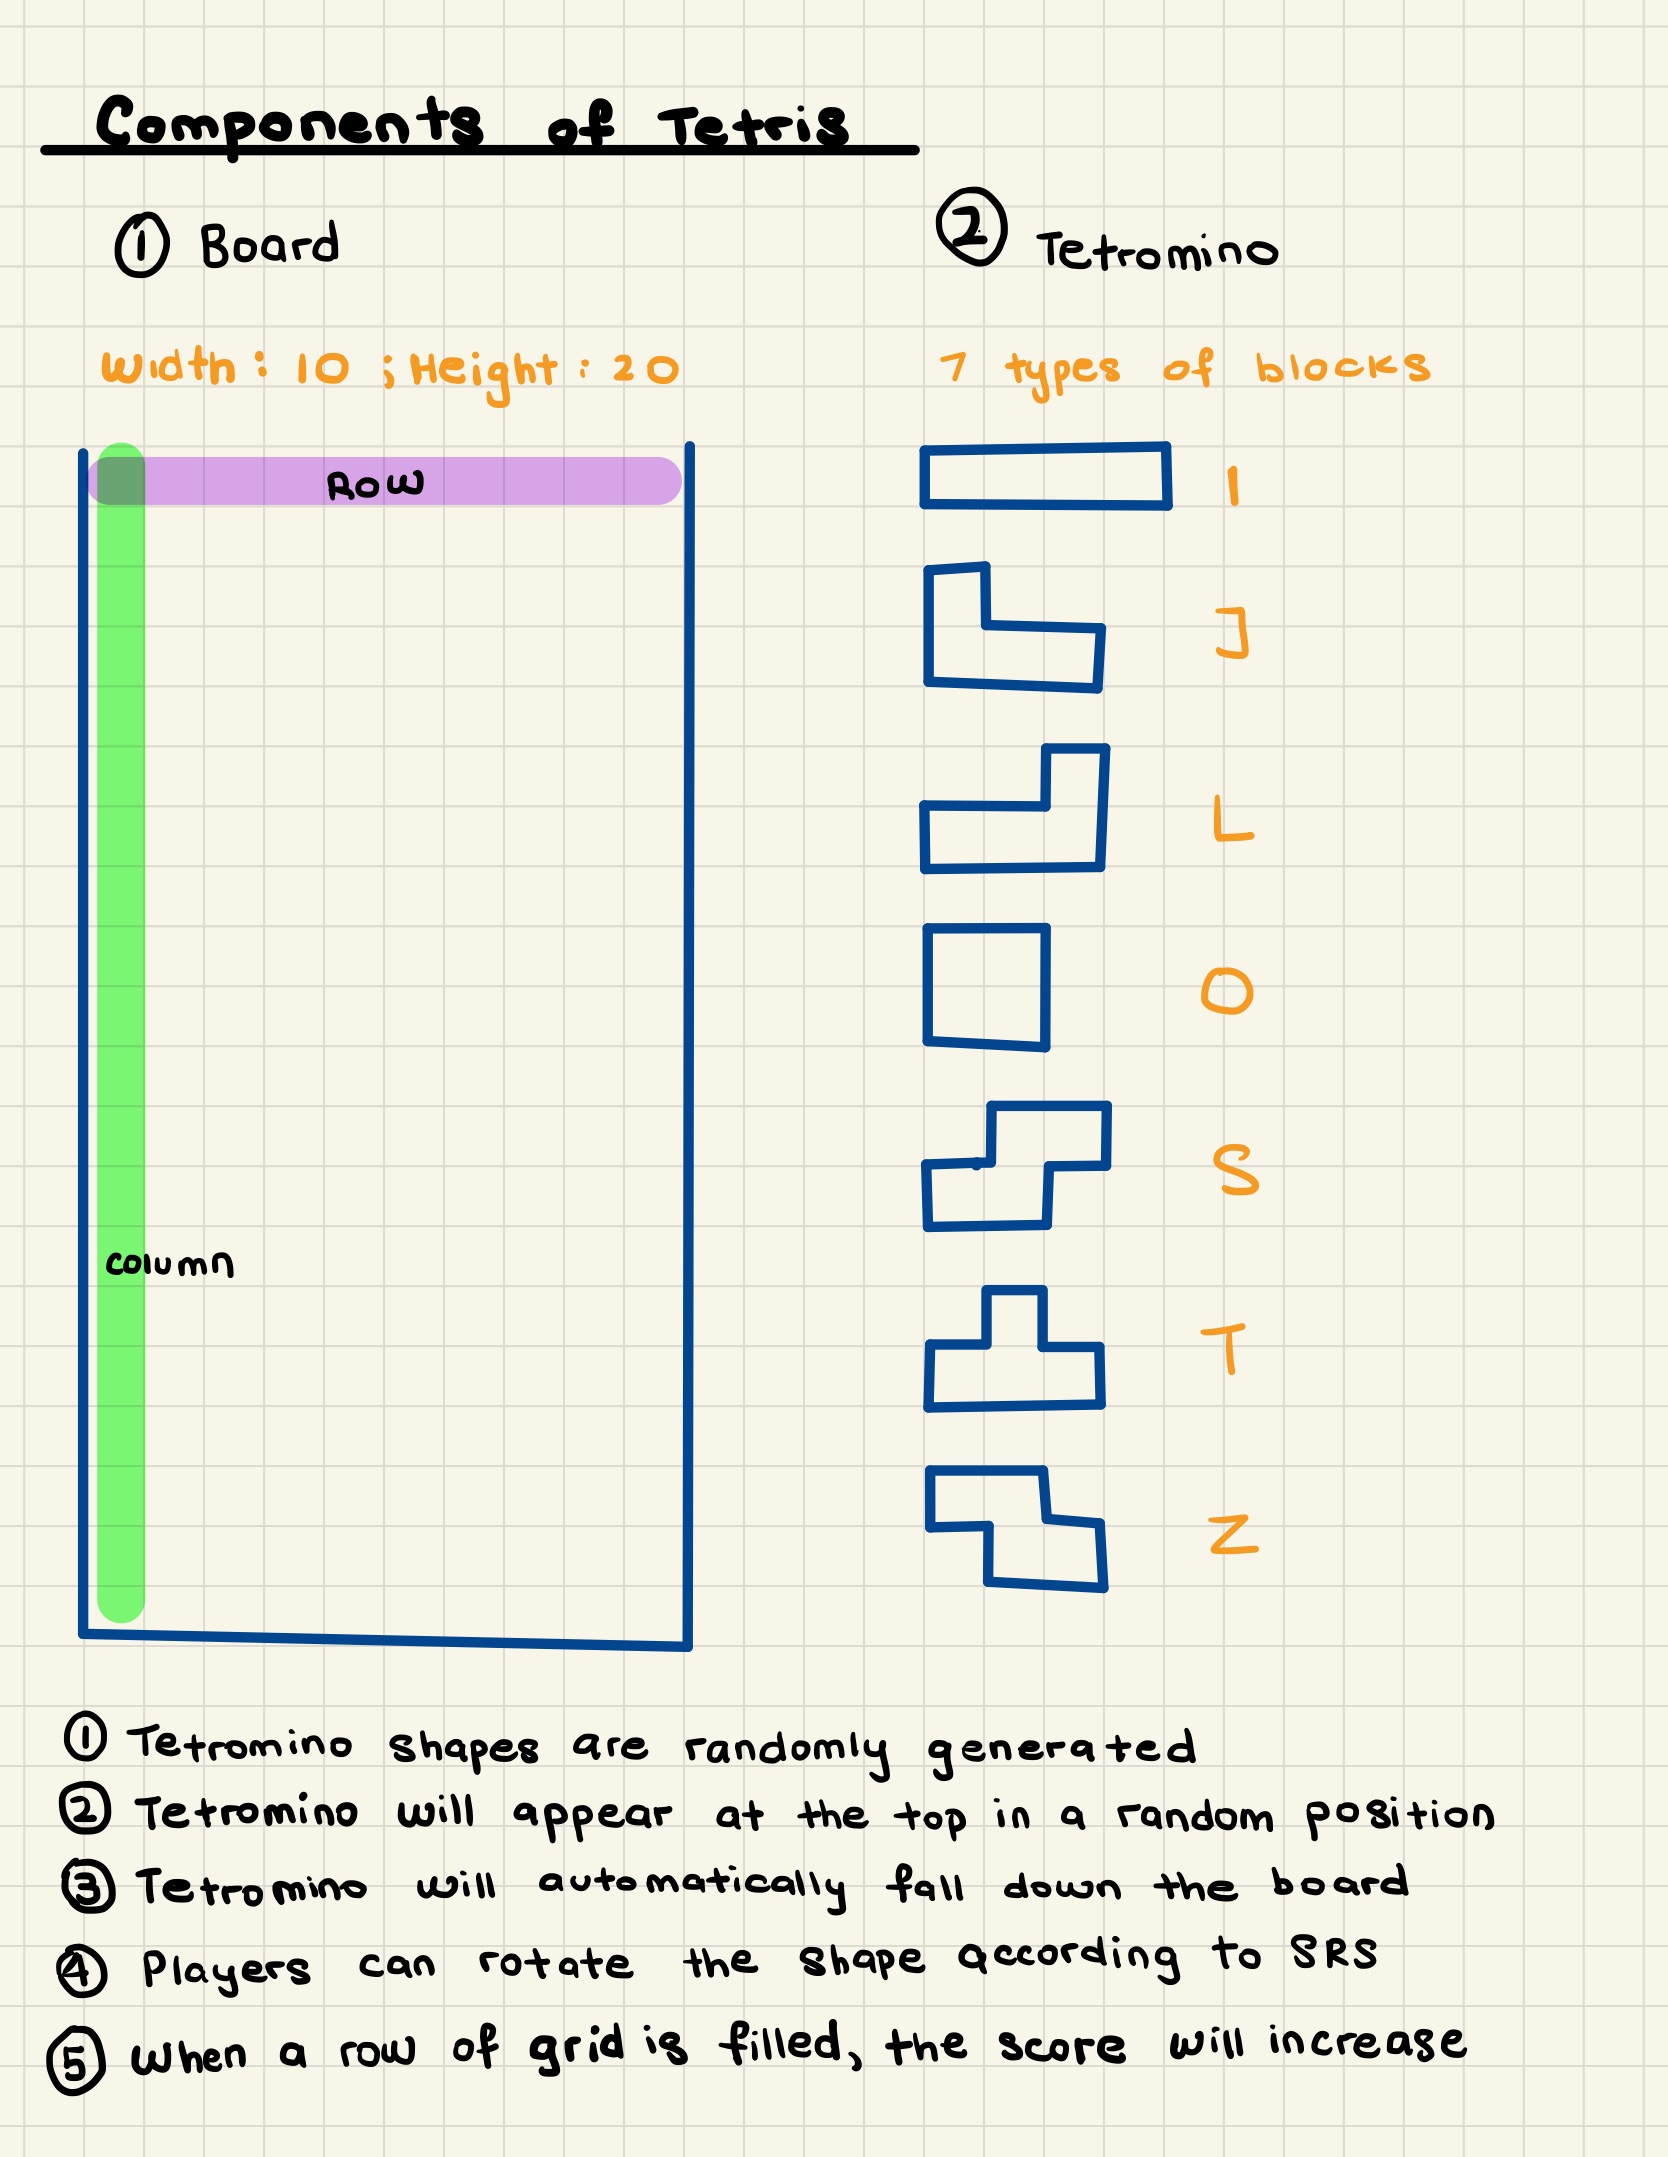 Components of Tetris
① Board
② Tetromino
Width: 10 ; Height: 20
7 types of blocks
Row
I
J
L
O
S
column
T
Z
① Tetromino shapes are randomly generated
② Tetromino will appear at the top in a random position
③ Tetromino will automatically fall down the board
④ Players can rotate the shape according to SRS
⑤ When a row of grid is filled, the score will increase